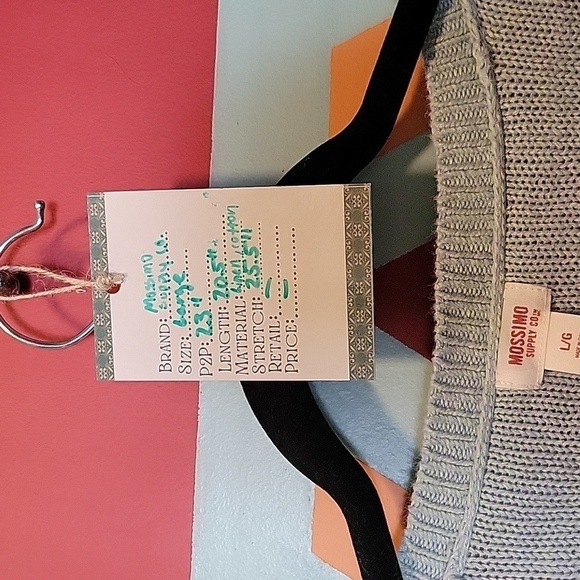 BRAND: Mossimo
Supply Co.
SIZE: Large
P2P: 23"
LENGTH: 20.5"
MATERIAL: cotton
STRETCH: 25.5"
RETAIL: –
PRICE: –
MOSSIMO
SUPPLY CO.
L/G